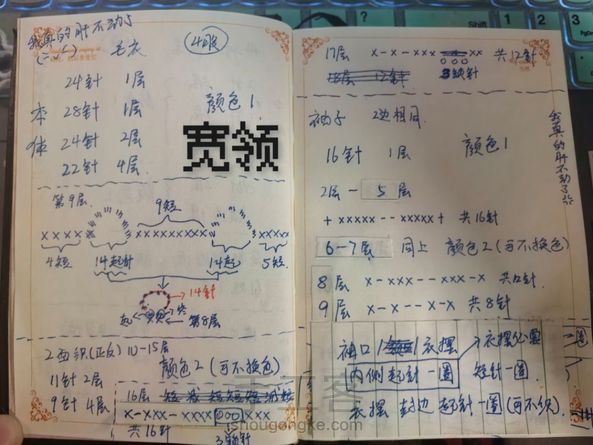 我真的肝不动了
(二、1) 毛衣
4股
24针 1层
本体
28针 1层 颜色1
24针 2层
22针 4层
宽领
第9层
9短
x x x x
xxxxxxxxx
xxxxx
4短 14起针 14起 5短
14针
第8层
2面织(正反) 10-15层
颜色2 (可不换色)
11针 2层
9针 4层
16层
x-xxx-xxxx 000 xxx
共16针
17层 x-x--xxx 共12针
000
3缺针
袖子 2边相同
16针 1层 颜色1
2层-5层
+xxxxx--xxxxx+ 共16针
6-7层 同上 颜色2 (可不换色)
8层 x-xxx--xxx-x 共12针
9层 x-x--x-x 共8针
袖口 衣摆
内侧起针一圈 短针一圈.
衣摆 封边 起针一圈(可不织).
我真的肝不动了
shougongke.com
Shift